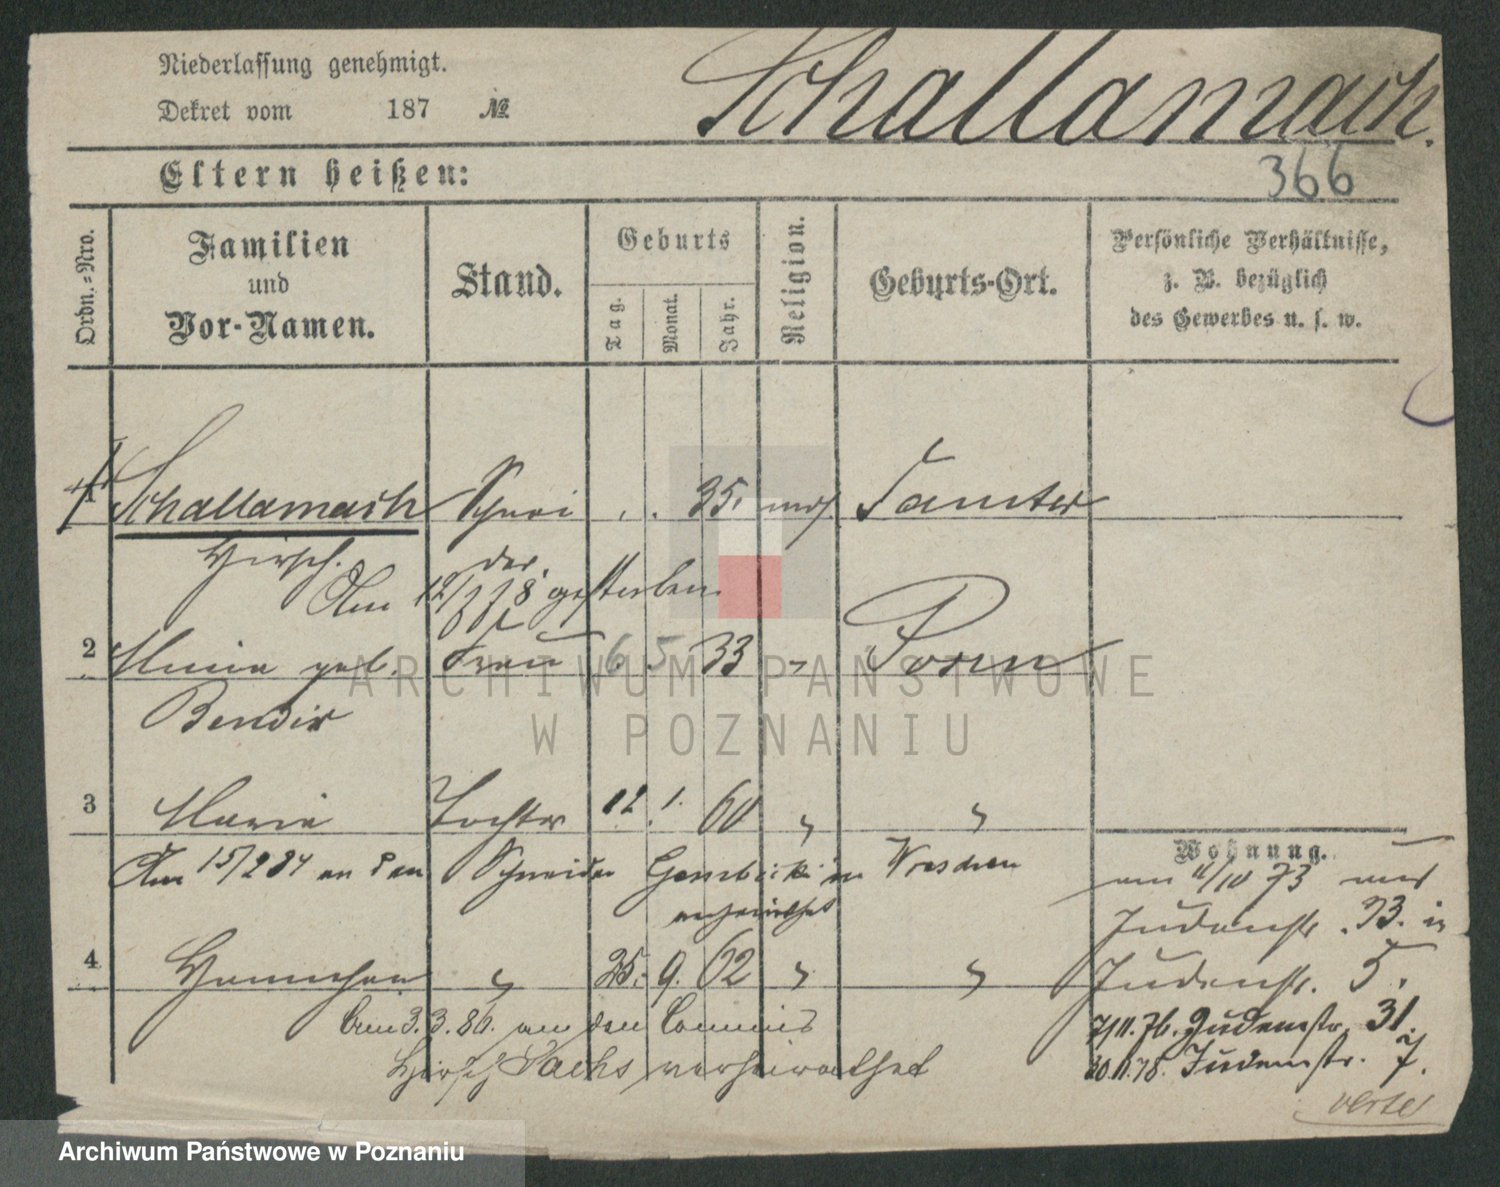 Niederlassung genehmigt.
Dekret vom 187 №
Schallamach.
366
Eltern heißen:
Ordn.-Nro.
Familien
und
Vor-Namen.
Stand.
Geburts
Tag.
Monat.
Jahr.
Religion.
Geburts-Ort.
Persönliche Verhältnisse,
z. B. bezüglich
des Gewerbes u. s. w.
1 Schallamach Schnei 35. mos Samter
Hirsch. der.
Am gestorben
2 geb. Frau 6 5 33 " Posen
Bendix
3 Marie Tochter 12. 1. 60 " "
Am 15/2 84 an den Schneider in Dresden
verheirathet
Wohnung.
am 11/10 73 aus
Judenstr. 33. in
4 Hannchen " 25. 9. 62 " "
Judenstr. 5.
Am 3.3.86. an den Commis
7/11.76. Judenstr. 31.
Hirsch Sachs verheirathet
20.11.78. Judenstr. 7.
verte
ARCHIWUM PAŃSTWOWE
W POZNANIU
Archiwum Państwowe w Poznaniu